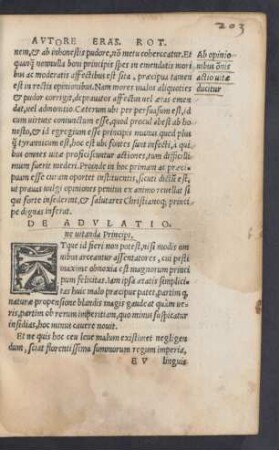 203
AVTORE ERAS. ROT.
nem, & ab inhonestis pudore, nõ metu coherceatur. Et
quanq̃ nonnulla boni principis spes in emendatis mori
bus ac moderatis affectibus est sita, præcipua tamen
est in rectis opinionibus. Nam mores malos aliquoties
& pudor corrigit, deprauatos affectus vel ætas emen
dat, vel admonitio. Cæterum ubi persuasum est, id
cum virtute coniunctum esse, quod procul abest ab ho
nesto, & id egregium esse principis munus, quod plus
q̃ tyrannicum est, hoc est ubi fontes sunt infecti, à qui
bus omnes vitæ proficiscuntur actiones, tum difficilli
mum fuerit mederi. Proinde in hoc primam ac præci
puam esse curam oportet instituentis, sicuti dictũ est,
ut prauas vulgi opiniones penitus ex animo reuellat si
quæ forte insederint, & salutares Christianoq; princi
pe dignas inserat.
Ab opinio-
nibus õnis
actio uitæ
ducitur
DE ADVLATIO-
ne uitanda Principi.
ATque id fieri non potest, nisi modis om
nibus arceantur assentatores, cui pesti
maxime obnoxia est magnorum princi
pum felicitas. Iam ipsa ætatis simplicitas
huic malo præcipue patet, partim q,
naturæ propensione blandis magis gaudeat quàm ue-
ris, partim ob rerum imperitiam, quo minus suspicatur
insidias, hoc minus cauere nouit.
Et ne quis hoc ceu leue malum existimet negligen
dum, sciat florentissima summorum regum imperia,
E V linguis